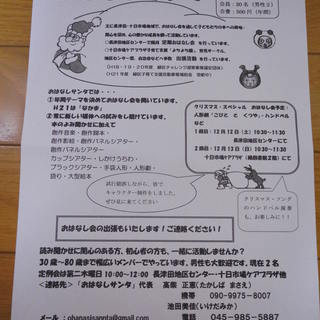 会員：30名（男性2）
会費：500円（年間）
主に長津田・十日市場地域で、おはなし会を通して子どもたちの本への興味・
関心を図り、心の豊かな成長を応援しています。
長津田地区センターで隔月 定期おはなし会 を行っています。
十日市場ケアプラザで子育て支援「よちよち館」
地区センター、自治会などへ季節 出張活動 を行っています。
おはなしサンタでは・・・
①年間テーマを決めておはなし会を開いています。
H21は「なかま」
②常に新しい媒体への試みをし続けています。
本のよみ聞かせに加えて
創作音楽・創作脚本・
創作影絵・創作パネルシアター
創作パネルシアター
カップシアター・しかけうちわ・
ブラックシアター・手袋人形・人形劇・
語り・大型絵本
クリスマス・スペシャル おはなし会予定：
人形劇「こびと と くつや」・ハンドベル
など
1回目：12月12日（土）10:30～11:30
長津田地区センター
2回目：12月13日（日）10:30～11:30
十日市場ケアプラザ（緑図書館2階）にて
試行錯誤しながら、皆で
キャラクター制作をしました。
ぜひ見に来てください
クリスマス・ソング
のハンドベル演奏
も、お楽しみに！！
おはなし会の出演もいたします！ご連絡ください！
読み聞かせに関心のある方、初心者の方も、一緒に活動しませんか？
30歳～80歳まで幅広いメンバーでやっています。男性も大歓迎です。現在2名
定例会は第二木曜日 10:00～12:00 長津田地区センター・十日市場ケアプラザ他
＜連絡先＞ 「おはなしサンタ」代表 高梨 正恵（たかはし まさえ）
携帯 090-9975-8007
池田美佳（いけだみか）
メール：ohanasisannta@gmail.com 045-985-5887